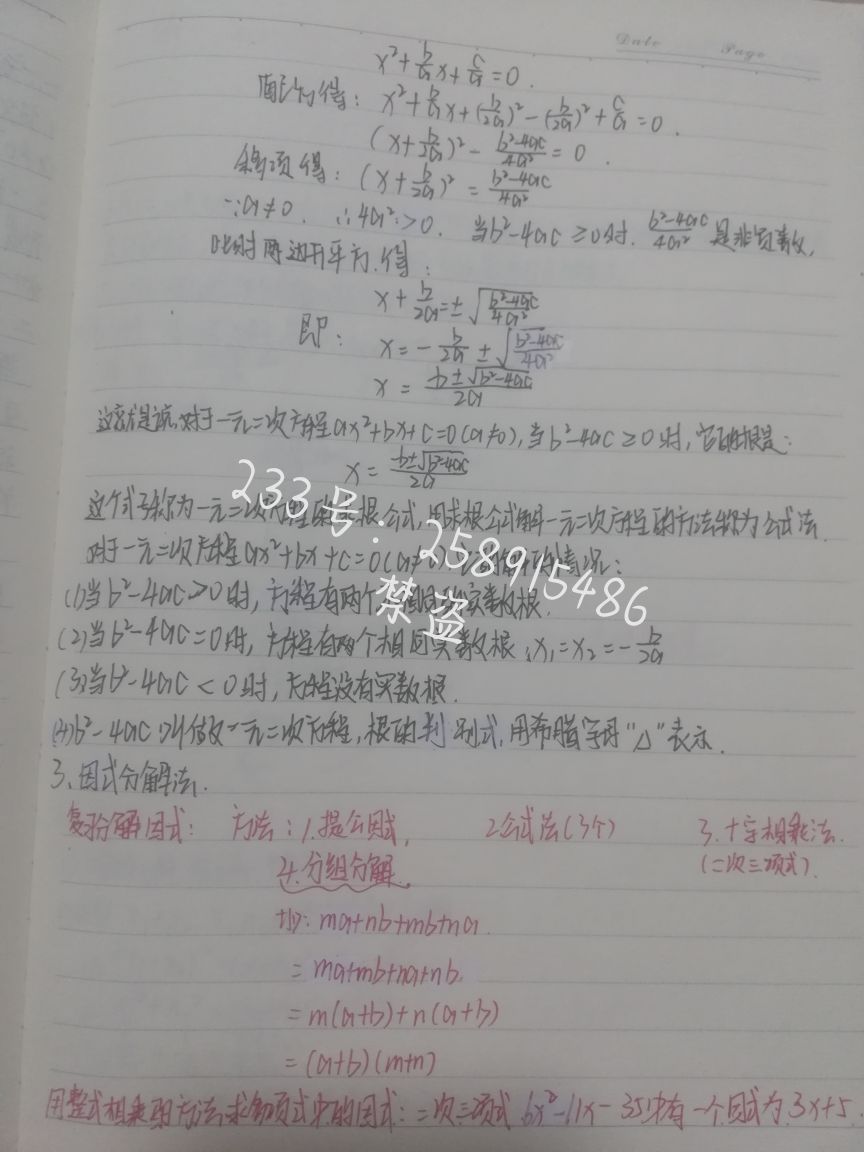 Date Page
x²+b/a x+c/a=0.
配方得: x²+b/a x+(b/2a)²-(b/2a)²+c/a=0.
(x+b/2a)²-b²-4ac/4a²=0.
移项得: (x+b/2a)²=b²-4ac/4a²
∵a≠0. ∴4a²>0. 当b²-4ac≥0时. b²-4ac/4a²是非负数,
此时两边开平方.得:
x+b/2a=±√b²-4ac/4a²
即: x=-b/2a±√b²-4ac/4a²
x=-b±√b²-4ac/2a
这就是说,对于一元二次方程ax²+bx+c=0(a≠0),当b²-4ac≥0时,它的根是:
x=-b±√b²-4ac/2a
这个式子称为一元二次方程的求根公式,用求根公式解一元二次方程的方法称为公式法.
对于一元二次方程ax²+bx+c=0(a≠0)的情况:
233号:258915486
禁盗
(1)当b²-4ac>0时,方程有两个实数根.
(2)当b²-4ac=0时,方程有两个相同实数根,x₁=x₂=-b/2a
(3)当b²-4ac<0时,方程没有实数根.
(4)b²-4ac叫做一元二次方程,根的判别式,用希腊字母"△"表示.
3、因式分解法.
复习分解因式: 方法:1.提公因式, 2公式法(3个) 3.十字相乘法.
4.分组分解. (二次三项式).
如: ma+nb+mb+na.
=ma+mb+na+nb.
=m(a+b)+n(a+b)
=(a+b)(m+n)
用整式相乘的方法求多项式中的因式:二次三项式6x²-11x-35中有一个因式为3x+5.